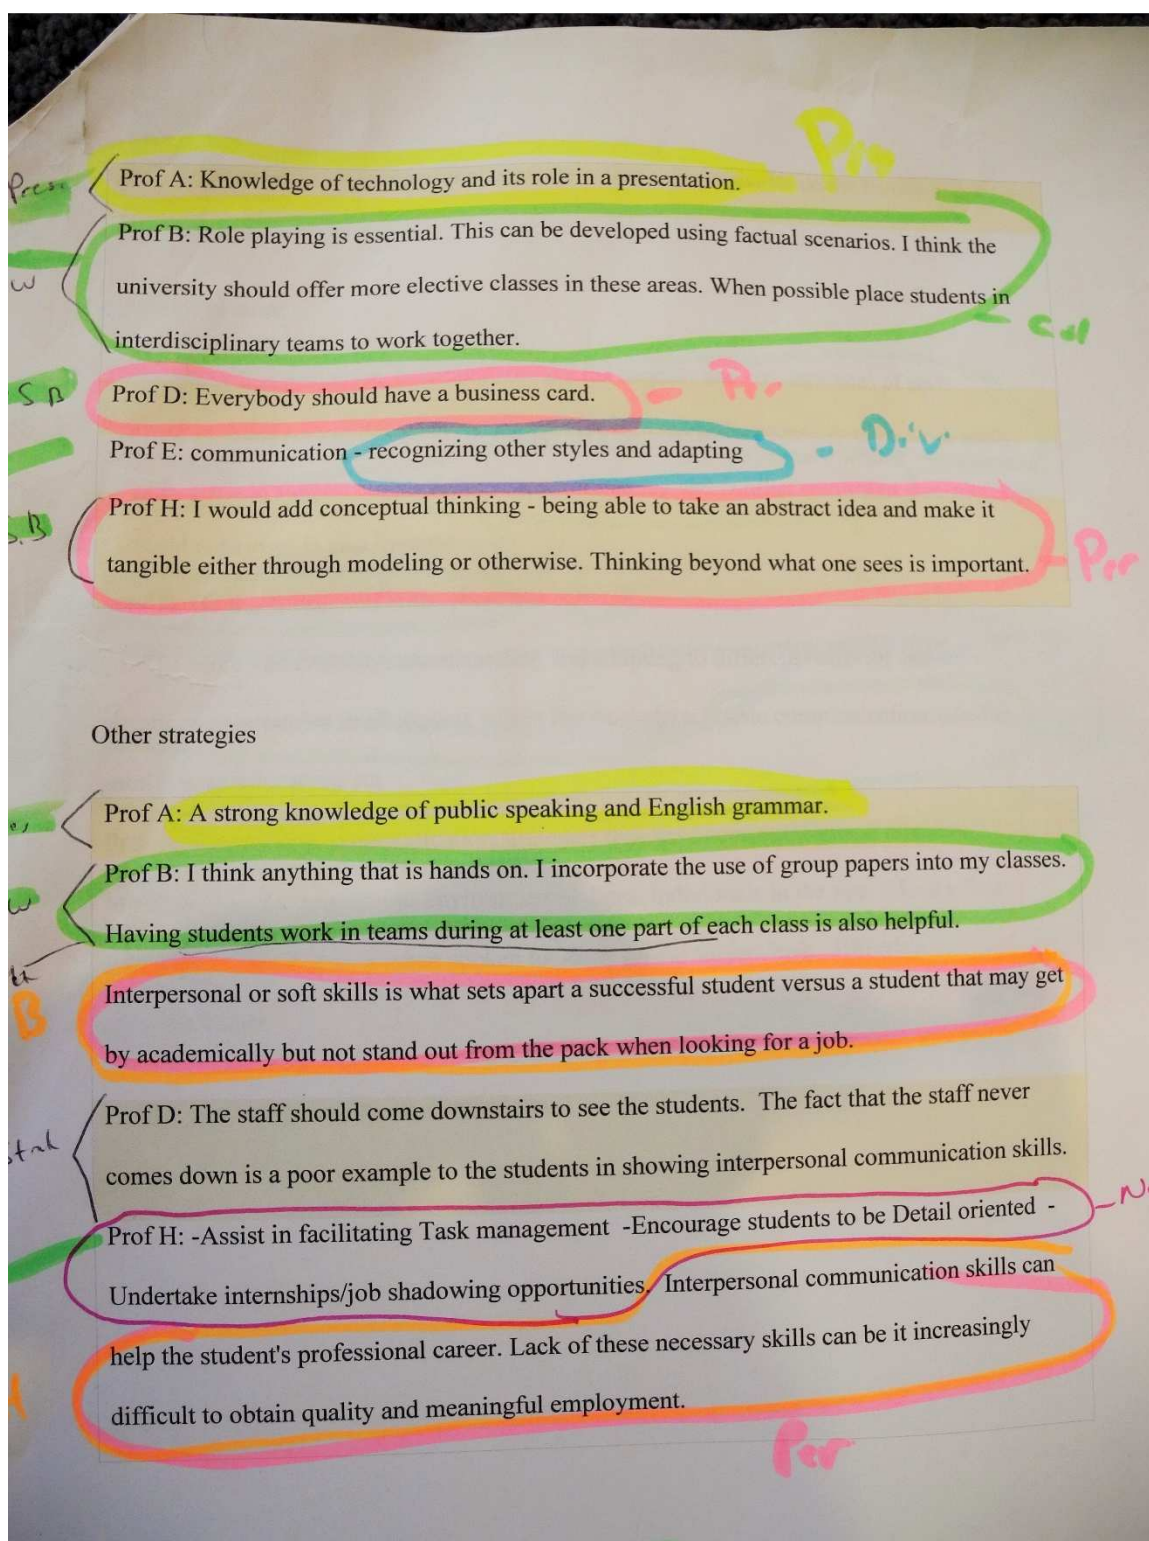 Pres.
Prof A: Knowledge of technology and its role in a presentation.
Prof B: Role playing is essential. This can be developed using factual scenarios. I think the
W
university should offer more elective classes in these areas. When possible place students in
interdisciplinary teams to work together.
Col
S B
Prof D: Everybody should have a business card.
Prof E: communication - recognizing other styles and adapting
- Div.
S.B
Prof H: I would add conceptual thinking - being able to take an abstract idea and make it
tangible either through modeling or otherwise. Thinking beyond what one sees is important.
- Per
Other strategies
Prof A: A strong knowledge of public speaking and English grammar.
Prof B: I think anything that is hands on. I incorporate the use of group papers into my classes.
w
Having students work in teams during at least one part of each class is also helpful.
B
Interpersonal or soft skills is what sets apart a successful student versus a student that may get
by academically but not stand out from the pack when looking for a job.
Prof D: The staff should come downstairs to see the students. The fact that the staff never
comes down is a poor example to the students in showing interpersonal communication skills.
Prof H: -Assist in facilitating Task management -Encourage students to be Detail oriented -
Undertake internships/job shadowing opportunities. Interpersonal communication skills can
help the student's professional career. Lack of these necessary skills can be it increasingly
difficult to obtain quality and meaningful employment.
Per